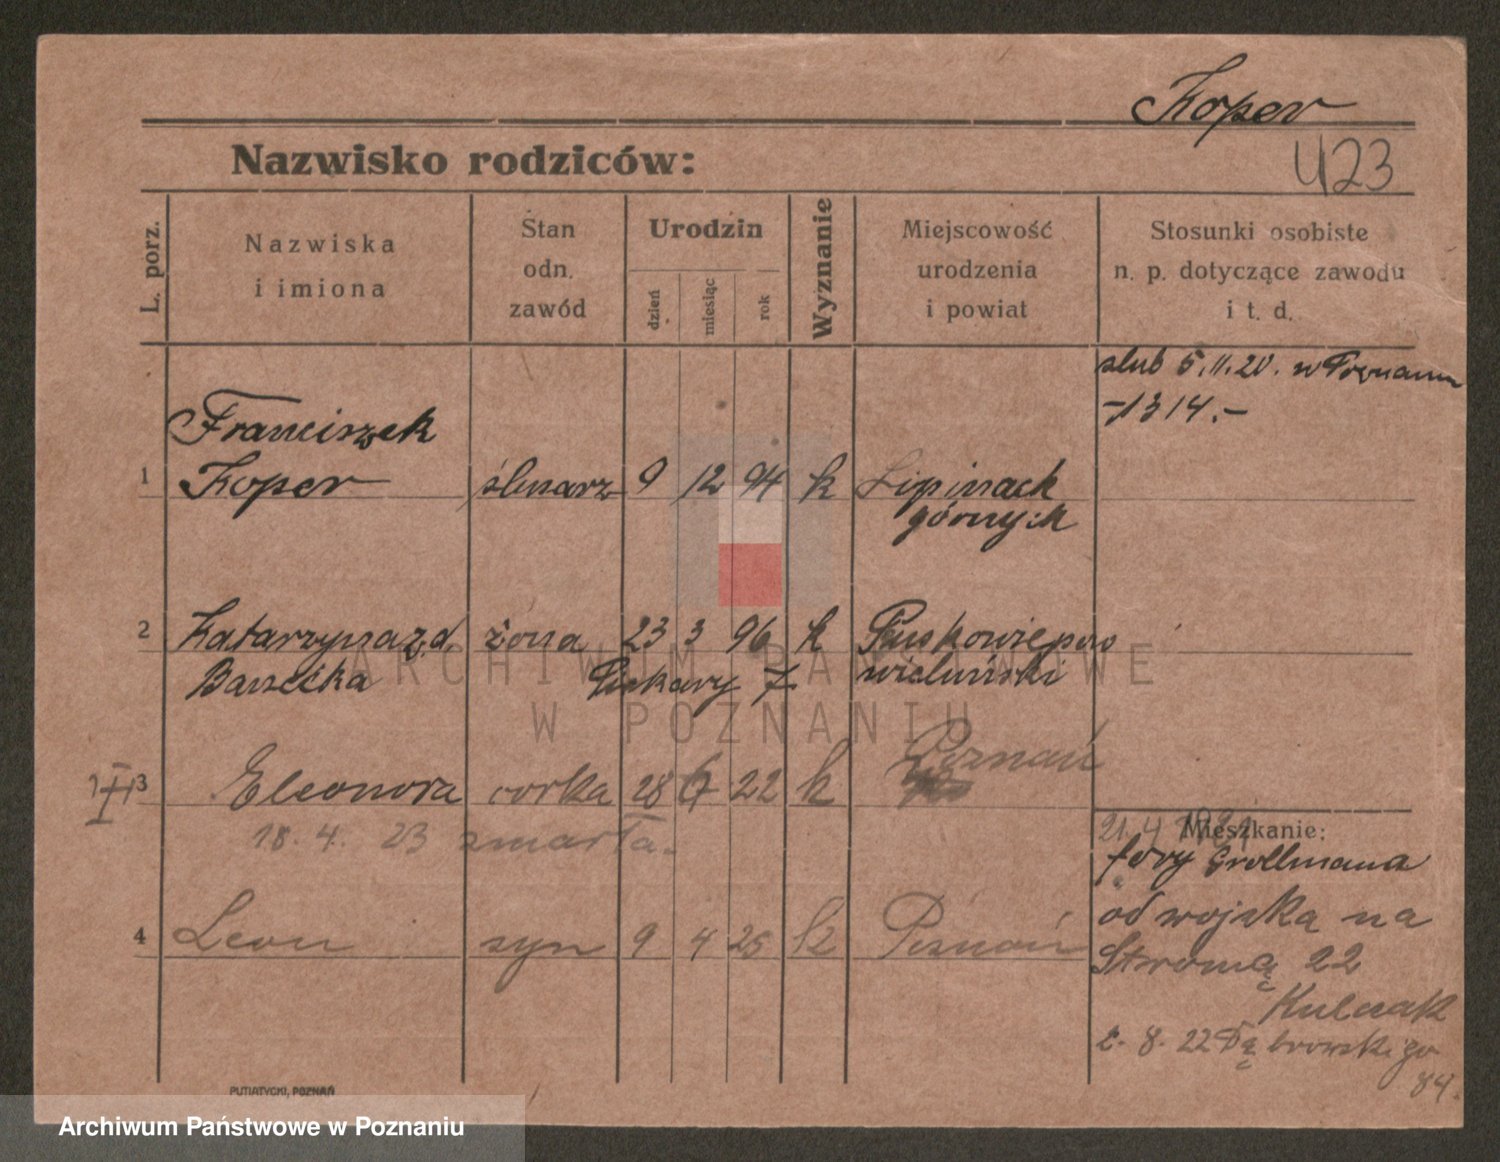 Koper
Nazwisko rodziców:
423
L. porz.
Nazwiska
i imiona
Stan
odn.
zawód
Urodzin
dzień
miesiąc
rok
Wyznanie
Miejscowość
urodzenia
i powiat
Stosunki osobiste
n. p. dotyczące zawodu
i t. d.
ślub 5.11.20. w Poznaniu
-1314.-
Franciszek
1 Koper ślusarz 9 12 94 k Lipinach
górnych
2 Katarzyna z d. żona 23 3 96 k
Piekary 7 wieluński
3 Eleonora corka 28 6 22 k Poznań
18. 4. 23 zmarła.
4 Leon syn 9 4 25 k Poznań
21. 4 1921
Mieszkanie:
fory Grollmana
od wojska na
Stromą 22
8. 22 Dąbrowskiego
84.
PUTIATYCKI, POZNAŃ
ARCHIWUM PAŃSTWOWE
W POZNANIU
Archiwum Państwowe w Poznaniu